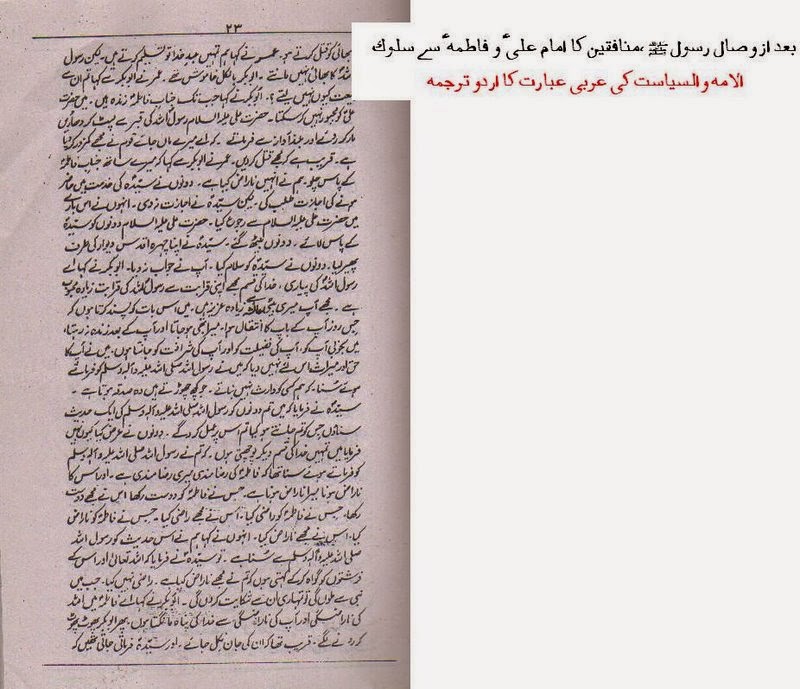 بعد از وصال رسول ﷺ، منافقین کا امام علیؑ و فاطمہؑ سے سلوک
الامہ والسیاست کی عربی عبارت کا اردو ترجمہ
۲۳
بھائی کو قتل کرتے ہو۔ عمر نے کہا ہم تمہیں عبد خدا تو تسلیم کرتے ہیں۔ لیکن رسول
اللہؐ کا بھائی نہیں مانتے۔ ابوبکر بالکل خاموش تھے۔ عمر نے ابوبکر سے کہا تم ان سے
بیعت کیوں نہیں لیتے؟۔ ابوبکر نے کہا جب تک جناب فاطمہؑ زندہ ہیں۔ میں حضرت
علیؑ کو مجبور نہیں کر سکتا۔ حضرت علی علیہ السلام رسول اللہ کی قبر سے لپٹ کر دھاڑیں
مار کر روئے اور بلند آواز سے فرماتے۔ کہ اے میرے ماں جائے قوم نے مجھے کمزور کر دیا
ہے۔ قریب ہے کہ مجھے قتل کر دیں۔ عمر نے ابوبکر سے کہا کہ میرے ساتھ جناب فاطمہؑ
کے پاس چلو۔ ہم نے انہیں ناراض کیا ہے۔ دونوں نے سیدہؑ کی خدمت میں حاضر
ہونے کی اجازت طلب کی۔ لیکن سیدہؑ نے اجازت نہ دی۔ انہوں نے اس بارے
میں حضرت علی علیہ السلام سے رجوع کیا۔ حضرت علی علیہ السلام دونوں کو سیدہؑ
کے پاس لائے۔ دونوں بیٹھ گئے۔ سیدہؑ نے اپنا چہرہ اقدس دیوار کی طرف
پھیر لیا۔ دونوں نے سیدہؑ کو سلام کیا۔ آپ نے جواب نہ دیا۔ ابوبکر نے کہا اے
رسول اللہؐ کی پیاری، خدا کی قسم مجھے اپنی قرابت سے رسول اللہ کی قرابت زیادہ محبوب
ہے۔ مجھے آپ میری بیٹی عائشہ سے زیادہ عزیز ہیں۔ میں اس بات کو پسند کرتا ہوں کہ
جس روز آپ کے باپ کا انتقال ہوا۔ میرا بھی ہو جاتا اور آپ کے بعد زندہ نہ رہتا۔
میں بخوبی آپ کو، آپ کی فضیلت کو اور آپ کی شرافت کو جانتا ہوں۔ میں نے آپ کا
حق اور میراث اس لئے نہیں دیا کہ میں نے رسول اللہ صلی اللہ علیہ وآلہ وسلم کو فرماتے
ہوئے سنا۔ کہ ہم کسی کو وارث نہیں بناتے۔ جو کچھ چھوڑتے ہیں وہ صدقہ ہوتا ہے۔
سیدہؑ نے فرمایا کہ میں تم دونوں کو رسول اللہ صلی اللہ علیہ وآلہ وسلم کی ایک حدیث
سناؤں جس کو تم جانتے ہو کیا تم اس پر عمل کرو گے۔ دونوں نے عرض کیا کیوں نہیں
فرمایا میں تمہیں خدا کی قسم دیکر پوچھتی ہوں۔ کہ تم نے رسول اللہ صلی اللہ علیہ وآلہ وسلم
کو فرماتے ہوئے سنا تھا کہ فاطمہؑ کی رضا مندی میری رضا مندی ہے۔ اور اس کا
ناراض ہونا میرا ناراض ہونا ہے۔ جس نے فاطمہؑ کو دوست رکھا اس نے مجھے دوست
رکھا، جس نے فاطمہؑ کو راضی کیا۔ اس نے مجھے راضی کیا۔ جس نے فاطمہؑ کو ناراض
کیا۔ اس نے مجھے ناراض کیا۔ انہوں نے کہا ہم نے اس حدیث کو رسول اللہ
صلی اللہ علیہ وآلہ وسلم سے سنا ہے۔ تو سیدہؑ نے فرمایا کہ اللہ تعالیٰ اور اس کے
فرشتوں کو گواہ کر کے کہتی ہوں کہ تم نے مجھے ناراض کیا ہے۔ راضی نہیں کیا۔ جب میں
نبی سے ملوں گی تو تمہاری ان سے شکایت کروں گی۔ ابوبکر نے کہا اے فاطمہؑ میں اللہ
کی ناراضگی اور آپ کی ناراضگی سے خدا کی پناہ مانگتا ہوں۔ پھر ابوبکر پھوٹ پھوٹ
کر رونے لگے۔ قریب تھا کہ ان کی جان نکل جائے۔ اور سیدہؑ فرماتی جاتی تھیں کہ